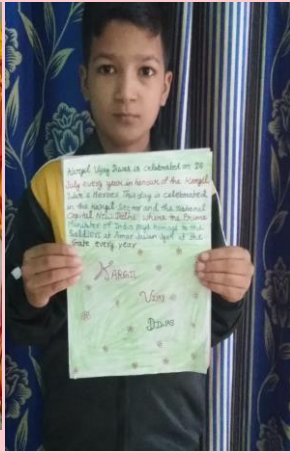 Kargil Vijay Diwas is celebrated on 26
July every year in honour of the Kargil
War's Heroes. This day is celebrated
in the Kargil Sector and the national
Capital New Delhi, where the Prime
Minister of India pays homage to the
Soldiers at Amar Jawan Jyoti at the
Gate every year
KARGIL
VIJAY
DIWAS